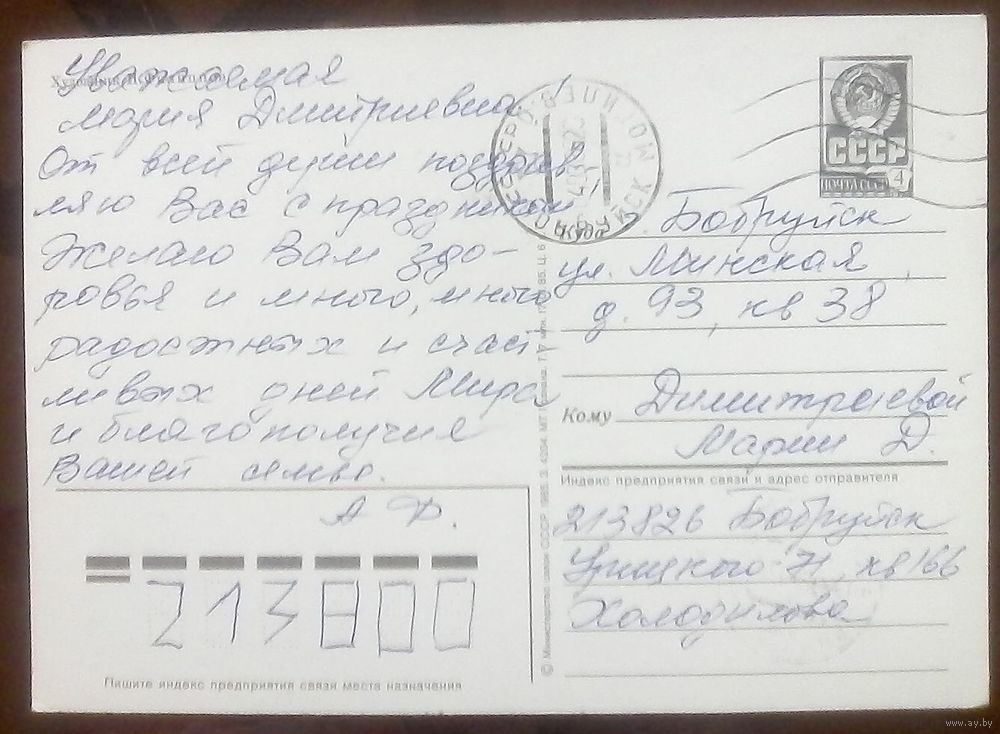 Уважаемая
Мария Дмитриевна!
От всей души поздрав
ляю Вас с праздником
Желаю Вам здо-
ровья и много, много
радостных и счаст
ливых дней Мира
и благополучия
Вашей семье.
А Ф.
213800
Пишите индекс предприятия связи места назначения
СССР
ПОЧТА СССР
4
г. Бобруйск
ул. Минская,
д. 93, кв 38
Кому Димитриевой
Марии Д.
Индекс предприятия связи и адрес отправителя
213826 Бобруйск
Урицкого 71, кв 166
© Министерство связи СССР. 1985.
www.ay.by